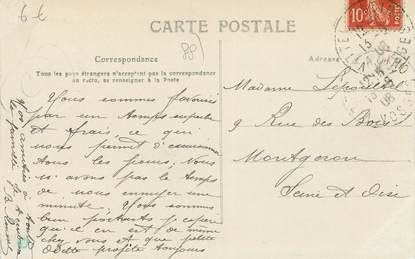 6 €
88
CARTE POSTALE
Correspondance
Tous les pays étrangers n'acceptent pas la correspondance
au recto, se renseigner à la Poste
Adresse
10
Nous sommes favorisés
par un temps superbe
et frais ce qui
nous permet d'excursionner
tous les jours. Nous
n'avons pas le temps
de nous ennuyer une
minute. Nous sommes
bien portants j'espère
qu'il en est de même
chez vous et que petite
Odette profite toujours
Vos amitiés à toute
la famille
Madame
9 Rue des Bois
Montgeron
Seine et Oise